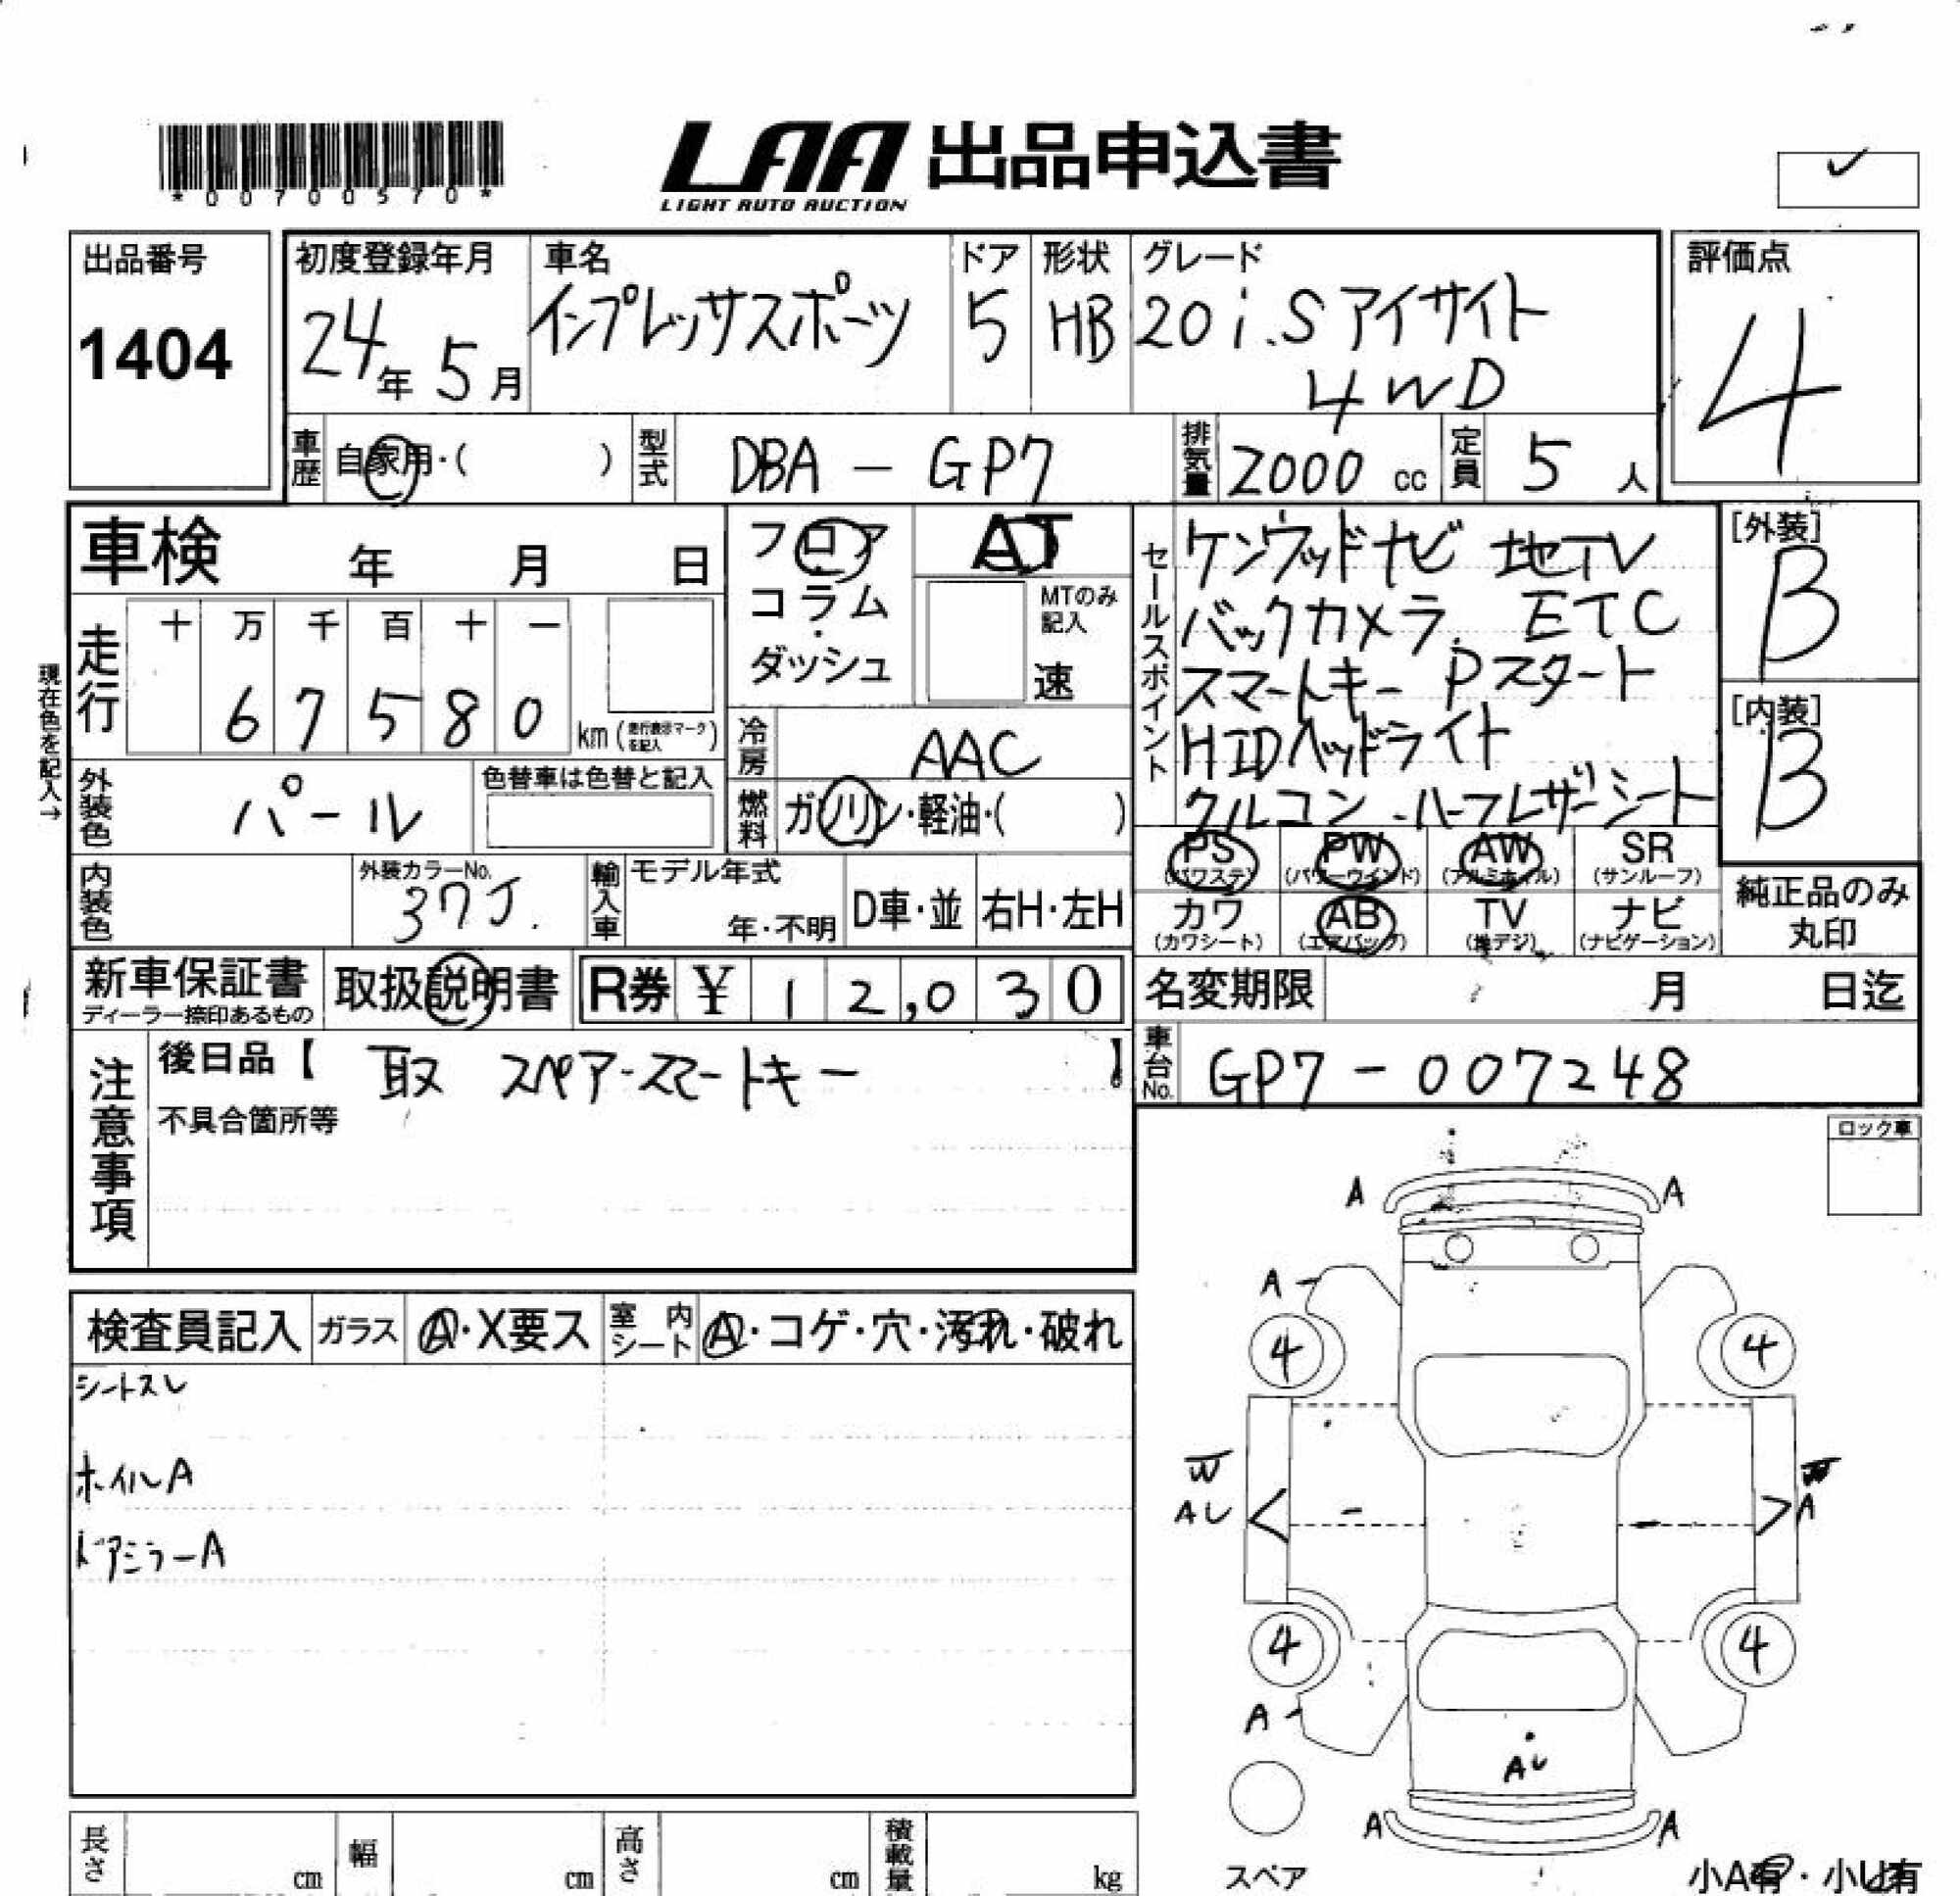 *00700570*
LAA 出品申込書
LIGHT AUTO AUCTION
出品番号
1404
初度登録年月
24年 5月
車名
インプレッサスポーツ
ドア
5
形状
HB
グレード
20i.S アイサイト
4WD
評価点
4
車歴
自家用・( )
型式
DBA - GP7
排気量
2000 cc
定員
5 人
車検 年 月 日
フロア
コラム
・
ダッシュ
AT
MTのみ
記入
速
セールスポイント
ケンウッドナビ 地TV
バックカメラ. ETC
スマートキー Pスタート
HIDヘッドライト
クルコン ハーフレザーシート
[外装]
B
[内装]
B
現在色を記入→
走行
十 万 千 百 十 一
6 7 5 8 0
km (走行表示マークを記入)
冷房
AAC
燃料
ガソリン・軽油・( )
外装色
パール
色替車は色替と記入
内装色
外装カラーNo.
37J.
輸入車
モデル年式
年・不明
D車・並
右H・左H
PS
(パワステ)
PW
(パワーウインド)
AW
(アルミホイル)
SR
(サンルーフ)
カワ
(カワシート)
AB
(エアバック)
TV
(地デジ)
ナビ
(ナビゲーション)
純正品のみ
丸印
新車保証書
ディーラー捺印あるもの
取扱説明書
R券 ¥ 12,030
名変期限 月 日迄
車台No.
GP7-007248
注意事項
後日品【 取 スペアースマートキー 】
不具合箇所等
ロック車
検査員記入
ガラス
A・X要ス
室内シート
A・コゲ・穴・汚れ・破れ
シートスレ
ホイルA
ドアミラーA
A A
A
4 4
W W
AU A
4 4
A
AU
A A
スペア
小A有・小U有
長さ cm
幅 cm
高さ cm
積載量 kg